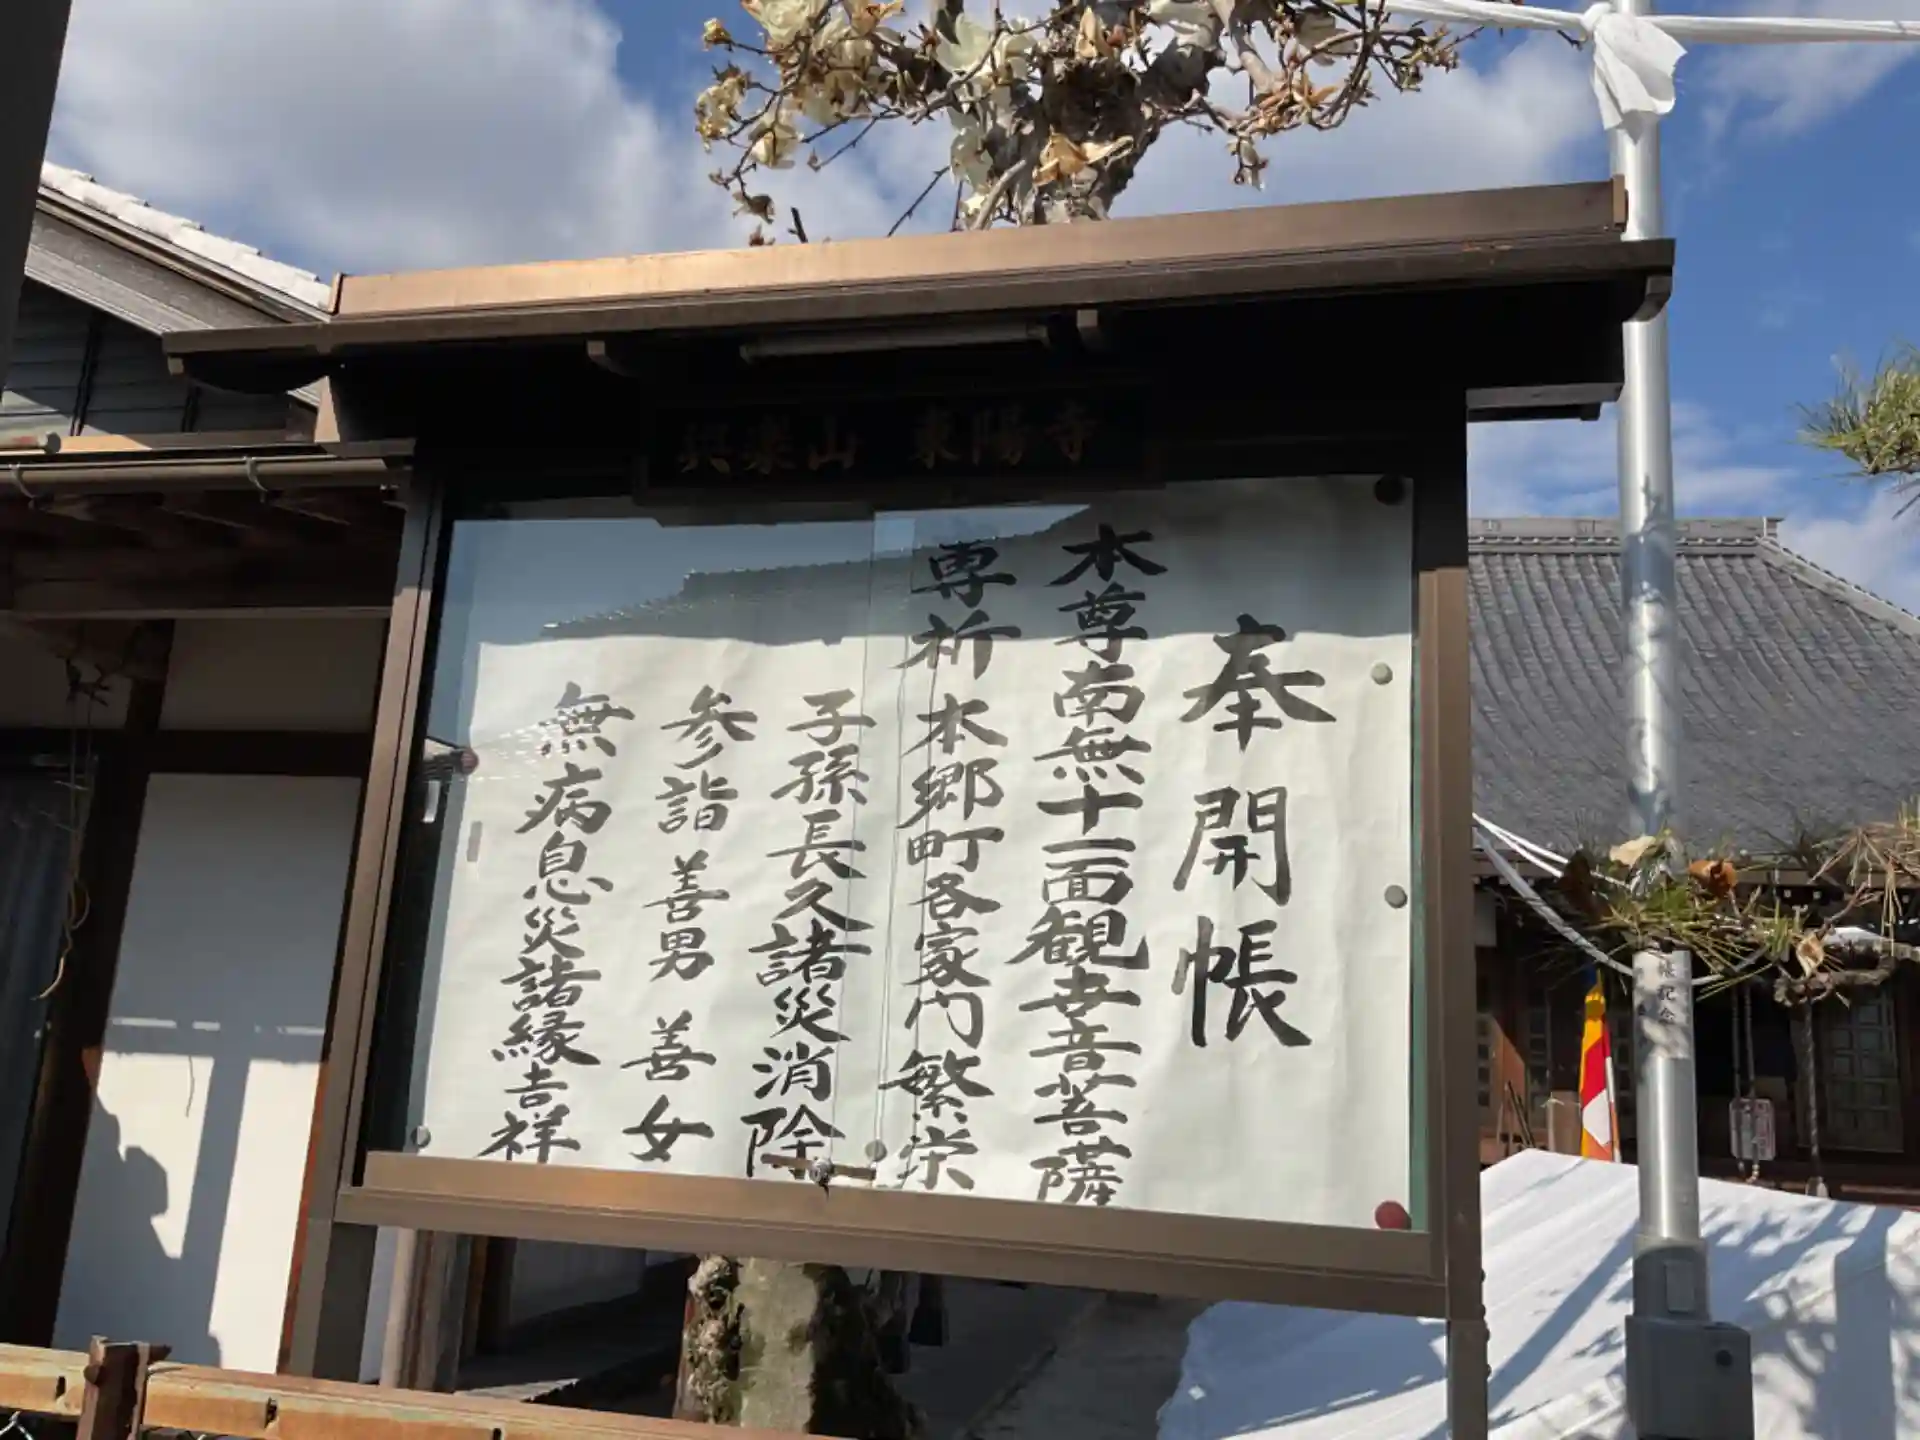 興楽山 東陽寺
奉開帳
本尊南無十一面観世音菩薩
専祈本郷町各家門繁栄
子孫長久諸災消除
参詣善男善女
無病息災諸縁吉祥
帳記念